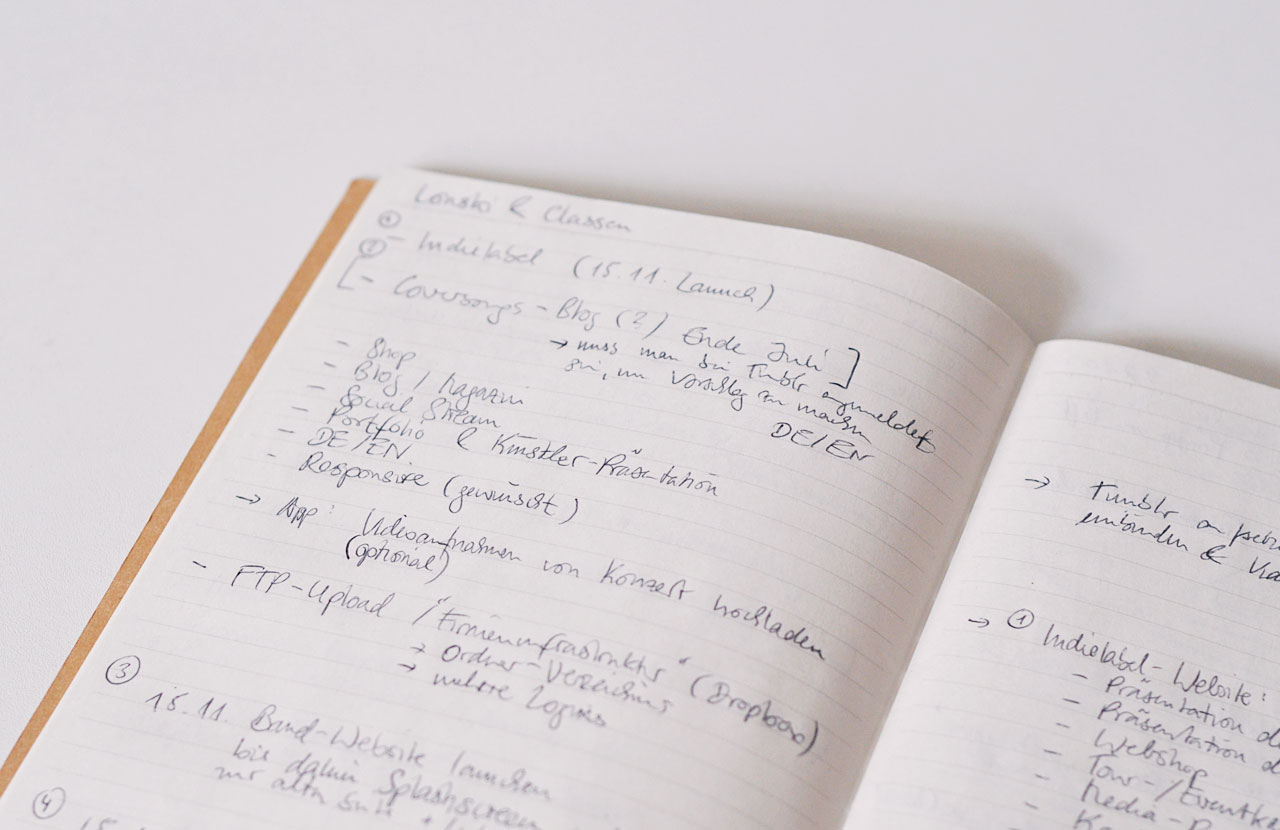 Lonski & Classen
① - Indielabel (15.11. Launch)
② [- Coversongs - Blog (?) Ende Juli ]
→ muss man bei Tumblr angemeldet
sein, um Vorschlag zu machen
DE/EN
- Shop
- Blog / Magazin
- Social Stream
- Portfolio & Künstler-Präsentation
- DE/EN
- Responsive (gewünscht)
→ App: Videoaufnahmen von Konzert hochladen
(optional)
- FTP-Upload / "Firmeninfrastruktur" (Dropbox)
→ Ordner-Verzeichnis
→ mehrere Logins
③ 15.11. Band-Website launchen
bis dahin Splashscreen
④ 15.11.
→ Tumblr
einbinden &
→ ① Indielabel-Website:
- Präsentation
- Präsentation
- Webshop
- Tour-/Eventk
- Media-